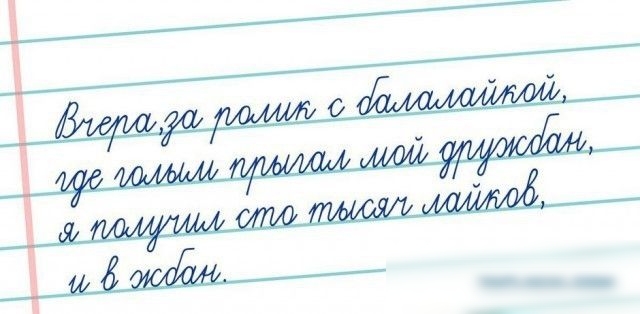 Вчера,за ролик с балалайкой,
где голым прыгал мой дружбан,
я получил сто тысяч лайков,
и в жбан.